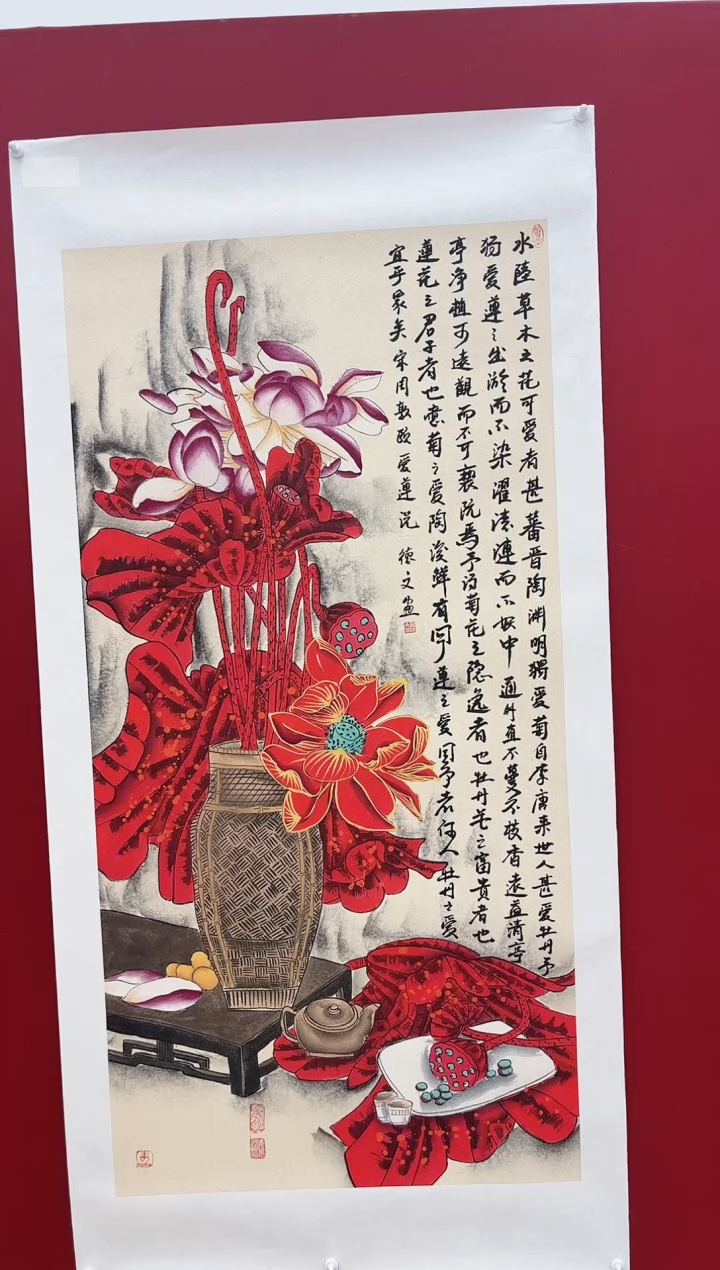 水陸草木之花可愛者甚蕃晋陶渊明獨愛菊自李唐来世人甚愛牡丹予
獨愛蓮之出淤而不染濯清漣而不妖中通外直不蔓不枝香遠益清亭
亭净植可遠觀而不可褻玩焉予谓菊花之隐逸者也牡丹花之富貴者也
蓮花之君子者也噫菊之愛陶後鮮有闻蓮之愛同予者何人牡丹之愛
宜乎衆矣宋周敦颐愛蓮说 德文畫